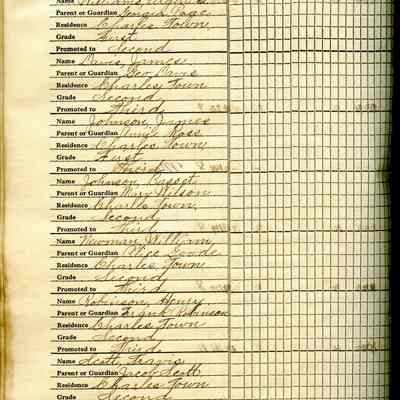 Name Williams,
Parent or Guardian Georgia Page
Residence Charles Town
Grade First
Promoted to Second
Name Davis, James
Parent or Guardian Geo Davis
Residence Charles Town
Grade Second
Promoted to Third
Name Johnson, James
Parent or Guardian Annie Ross
Residence Charles Town
Grade First
Promoted to
Name Johnson,
Parent or Guardian Mary Wilson
Residence Charles Town
Grade Second
Promoted to Third
Name Newman, William
Parent or Guardian Alice Goode
Residence Charles Town
Grade Second
Promoted to Third
Name Robinson, Henry
Parent or Guardian Frank Robinson
Residence Charles Town
Grade Second
Promoted to Third
Name Scott, Travis
Parent or Guardian Jacob Scott
Residence Charles Town
Grade Second